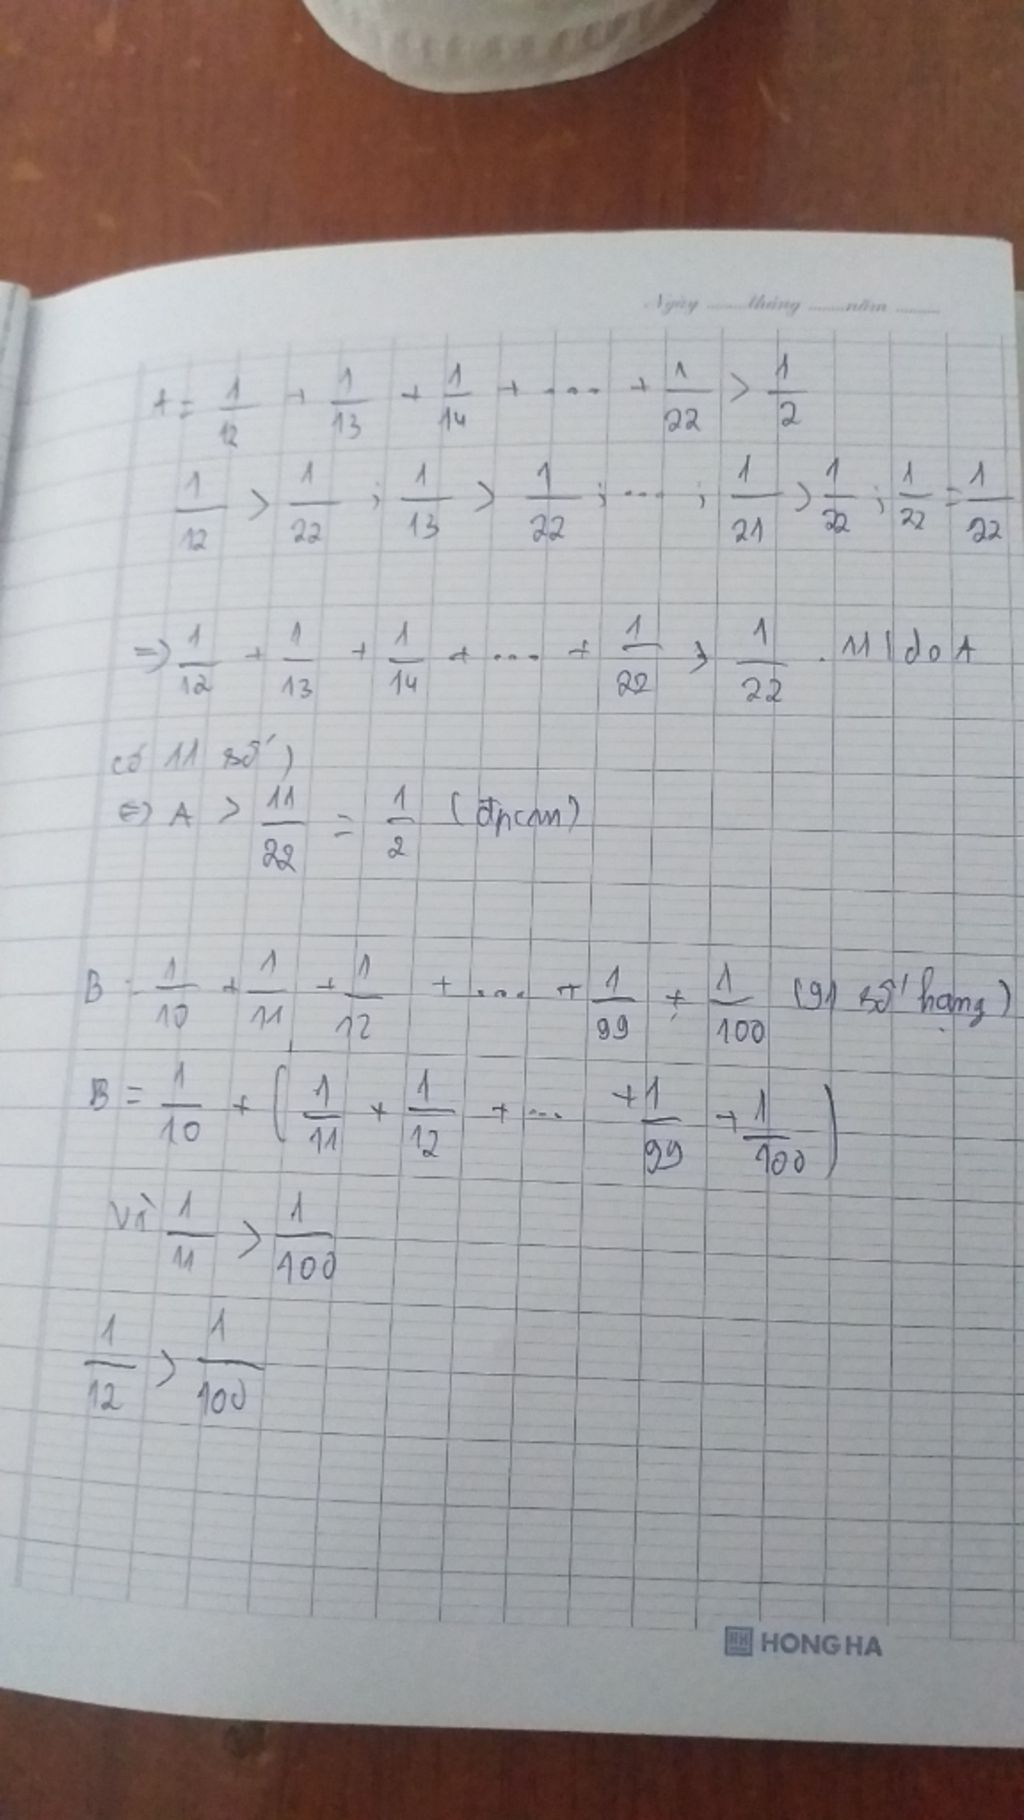 Ngày ........tháng .......năm .........
A = 1/12 + 1/13 + 1/14 + .... + 1/22 > 1/2
1/12 > 1/22 ; 1/13 > 1/22 ; ... ; 1/21 > 1/22 ; 1/22 = 1/22
=> 1/12 + 1/13 + 1/14 + .... + 1/22 > 1/22 . 11 ( do A
có 11 số )
<=> A > 11/22 = 1/2 ( đpcm )
B = 1/10 + 1/11 + 1/12 + .... + 1/99 + 1/100 (91 số hạng )
B = 1/10 + ( 1/11 + 1/12 + ... + 1/99 + 1/100 )
Vì 1/11 > 1/100
1/12 > 1/100
HH HONG HA